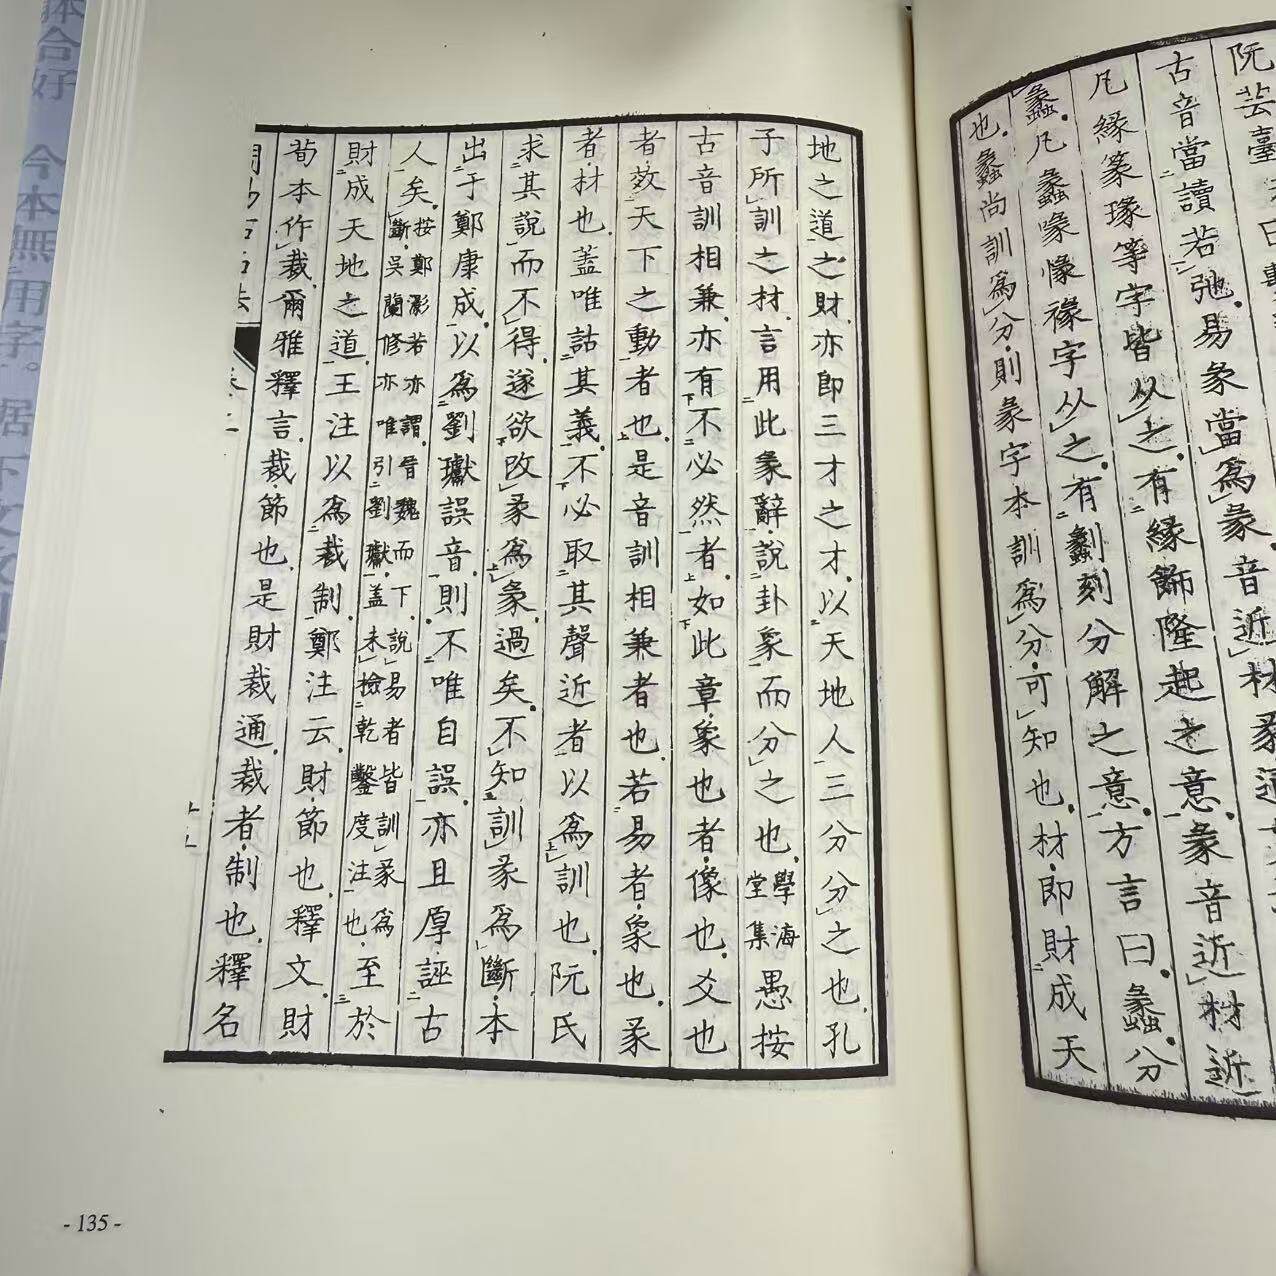 阮芸臺
古音當讀若弛易彖當爲彖音近材彖
凡緣篆瑑等字皆从之有緣飾隆起之意彖音近材近
蠡凡蠡喙㥟禒字从之有劙刻分解之意方言曰蠡分
也蠡尚訓爲分則彖字本訓爲分可知也材即財成天
地之道之財亦即三才之才以天地人三分分之也孔
子所訓之材言用此彖辭說卦象而分之也學海堂集愚按
古音訓相兼亦有不必然者如此章象也者像也爻也
者效天下之動者也是音訓相兼者也若易者象也彖
者材也蓋唯詁其義不必取其聲近者以爲訓也阮氏
求其說而不得遂欲改彖爲象過矣不知訓彖爲斷本
出于鄭康成以爲劉瓛誤音則不唯自誤亦且厚誣古
人矣按鄭若亦謂晉魏而下說易者皆訓彖爲
斷吳蘭修亦唯引劉瓛蓋未檢乾鑿度注也至於
財成天地之道王注以爲裁制鄭注云財節也釋文財
荀本作裁爾雅釋言裁節也是財裁通裁者制也釋名
- 135 -